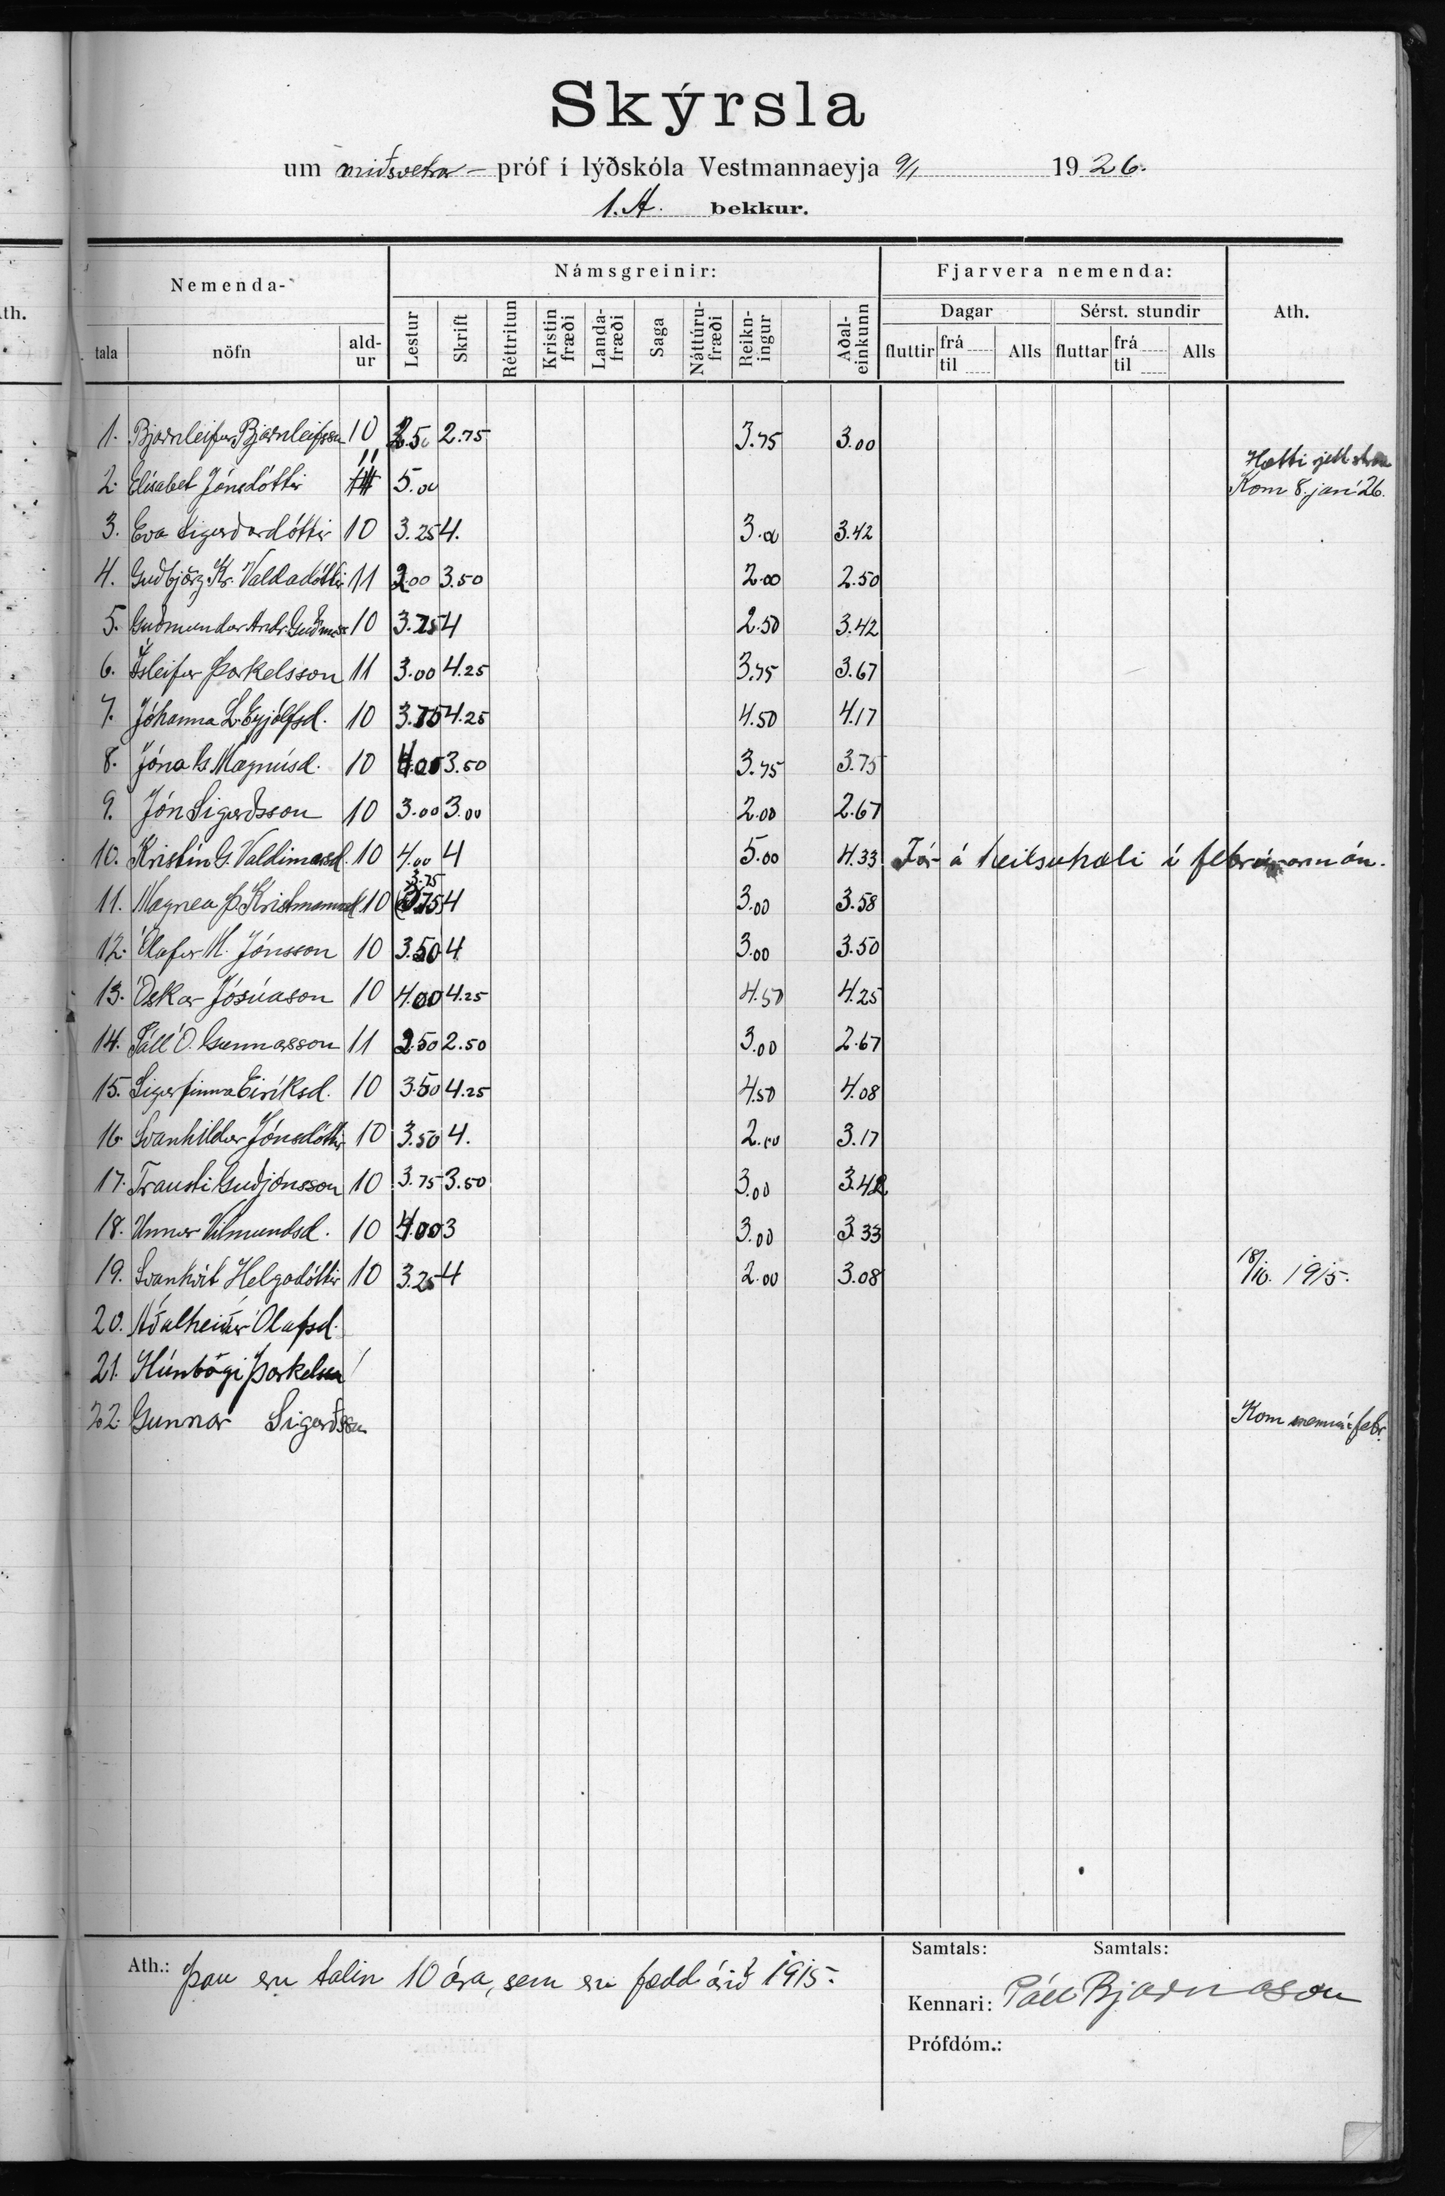 Skýrsla
um miðsvetrar- próf í lýðskóla Vestmannaeyja 9/1 1926.
1. A. bekkur.
Nemenda- Námsgreinir: Fjarvera nemenda: Ath.
Dagar Sérst. stundir
tala nöfn ald-ur Lestur Skrift Réttritun Kristin fræði Landa-fræði Saga Náttúru-fræði Reikn-ingur Aðal-einkunn fluttir frá til Alls fluttar frá til Alls
1. Bjarnleifur Bjarnleifsson 10 2.50 2.75 3.75 3.00
2. Elísabet Jónsdóttir 11 5.00 Hætti Kom 8. jan '26.
3. Eva Sigurðardóttir 10 3.25 4. 3.00 3.42
4. Guðbjörg Kr. Valdadóttir 11 2.00 3.50 2.00 2.50
5. Guðmundur Andr. Guðmss 10 3.75 4 2.50 3.42
6. Ísleifur Þorkelsson 11 3.00 4.25 3.75 3.67
7. Jóhanna L. Eyjólfsd. 10 3.75 4.25 4.50 4.17
8. Jóna G. Magnúsd. 10 4.00 3.50 3.75 3.75
9. Jón Sigurðsson 10 3.00 3.00 2.00 2.67
10. Kristín G. Valdimarsd. 10 4.00 4 5.00 4.33 Fór á heilsuhæli í febrúarmán.
11. Magnea Þ. Kristmannsd. 10 3.75 4 3.00 3.58
12. Ólafur M. Jónsson 10 3.50 4 3.00 3.50
13. Óskar Jósúason 10 4.00 4.25 4.50 4.25
14. Páll Ó. Gunnarsson 11 2.50 2.50 3.00 2.67
15. Sigurfinna Eiríksd. 10 3.50 4.25 4.50 4.08
16. Svanhildur Jónsdóttir 10 3.50 4. 2.00 3.17
17. Trausti Guðjónsson 10 3.75 3.50 3.00 3.42
18. Unnur Vilmundsd. 10 4.00 3 3.00 3.33
19. Svanhvít Helgadóttir 10 3.25 4 2.00 3.08 18/10. 1915.
20. Aðalheiður Ólafsd.
21. Húnbogi Þorkelsson
22. Gunnar Sigurðsson Kom febr.
Ath.: Þau eru talin 10 ára, sem eru fædd árið 1915.
Samtals: Samtals:
Kennari: Páll Bjarnason
Prófdóm.:
th.